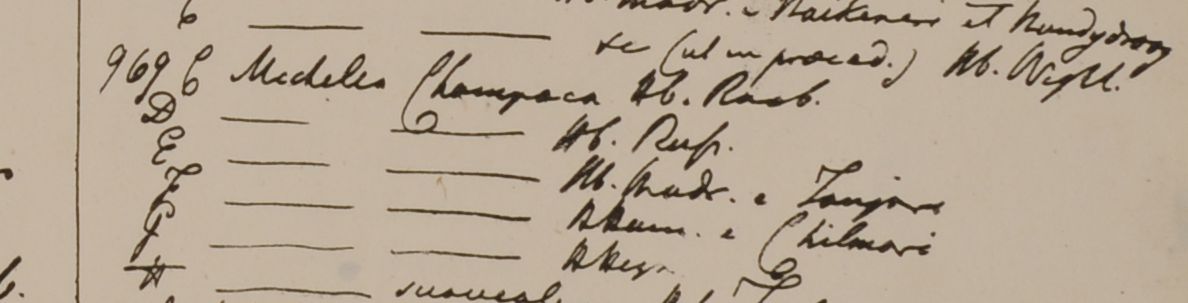 C — — Hb. Madr. e Naikeneri et Nundydroog
&c (ut in præced.) Hb. Wight.
969 C Michelea Champaca Hb. Roxb.
D — — Hb. Russ.
E — — Hb. Madr. e Tanjore
F — — HHam. e Chilmari
G — — HHeyn
H — suaveol